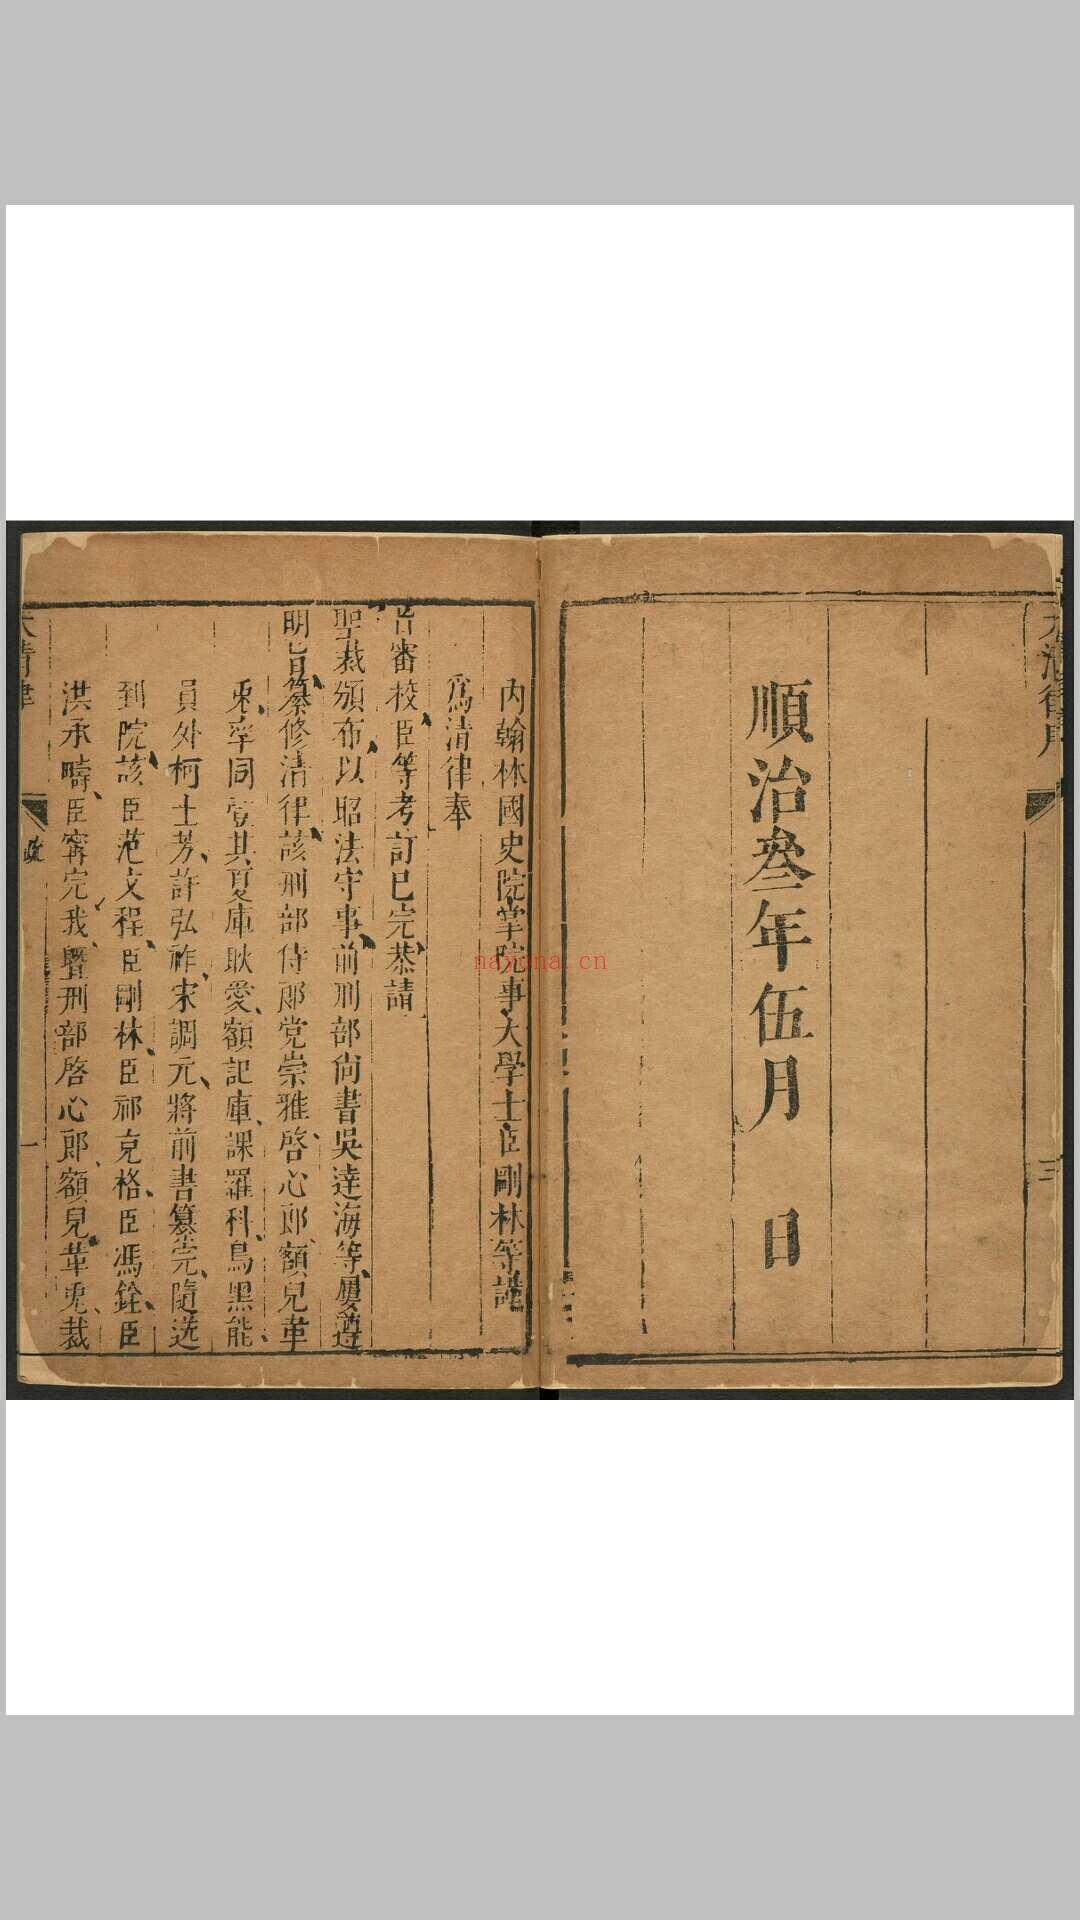 大清律
三
順治叄年伍月 日
內翰林國史院掌院事大學士臣剛林等謹
為清律奉
旨審校臣等考訂已完恭請
聖裁頒布以昭法守事前刑部尚書吳達海等屢遵
明旨纂修清律該刑部侍郎党崇雅啓心郎額兒革
兎孛同壹其夏庫耿愛額記庫課羅科鳥黑能
員外柯士芳許弘祚宋調元將前書纂完隨送
到院該臣范文程臣剛林臣祁充格臣馮銓臣
洪承疇臣甯完我曁刑部啓心郎額兒革兎裁
大清律
一
nayona.cn